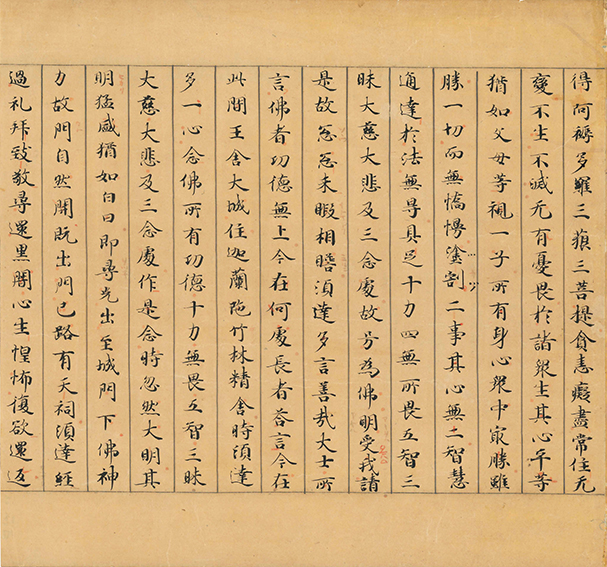 得阿耨多羅三藐三菩提貪恚癡盡常住无
變不生不滅无有憂畏於諸眾生其心平等
猶如父母等視一子所有身心眾中㝡勝雖
勝一切而無憍慢塗割二事其心無二智慧
通達於法無㝵具足十力四無所畏五智三
昧大慈大悲及三念處故号為佛明受我請
是故怱怱未暇相瞻須達多言善哉大士所
言佛者功德無上今在何處長者答言今在
此間王舍大城住迦蘭陁竹林精舍時須達
多一心念佛所有功德十力無畏五智三昧
大慈大悲及三念處作是念時忽然大明其
明猛盛猶如白日即尋光出至城門下佛神
力故門自然開既出門已路有天祠須達經
過礼拜致敬尋還黑闇心生惶怖復欲還返